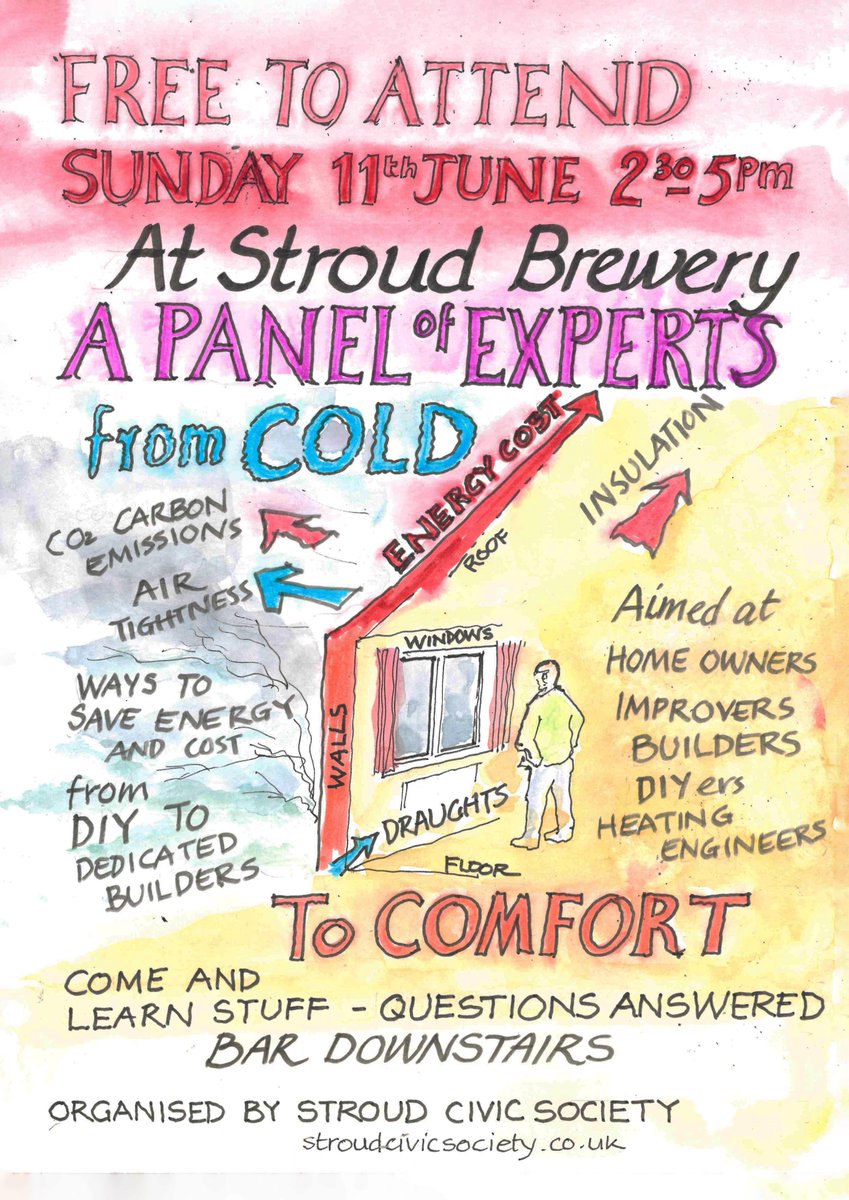 FREE TO ATTEND
SUNDAY 11th JUNE 2 30 5pm
At Stroud Brewery
A PANEL of EXPERTS
from COLD
ENERGY COST
INSULATION
ROOF
CO2 CARBON
EMISSIONS
AIR
TIGHTNESS
WAYS TO
SAVE ENERGY
AND COST
from
DIY TO
DEDICATED
BUILDERS
WALLS
WINDOWS
DRAUGHTS
FLOOR
Aimed at
HOME OWNERS
IMPROVERS
BUILDERS
DIYers
HEATING
ENGINEERS
To COMFORT
COME AND
LEARN STUFF - QUESTIONS ANSWERED
BAR DOWNSTAIRS
ORGANISED BY STROUD CIVIC SOCIETY
stroudcivicsociety.co.uk